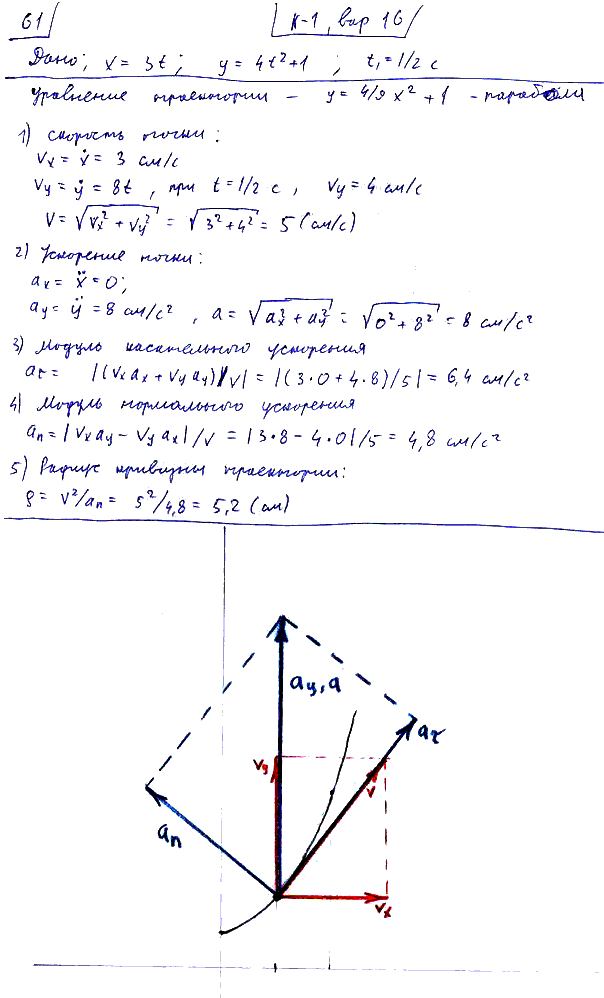 61
К-1, вар 16
Дано; x = 3t; y = 4t²+1; t₁ = 1/2 с
Уравнение траектории - y = 4/9 x² + 1 - парабола
1) Скорость точки:
Vx = ẋ = 3 см/с
Vy = ẏ = 8t, при t = 1/2 с, Vy = 4 см/с
V = √(Vx² + Vy²) = √(3² + 4²) = 5 (см/с)
2) Ускорение точки:
ax = ẍ = 0;
ay = ÿ = 8 см/с², a = √(ax² + ay²) = √(0² + 8²) = 8 см/с²
3) Модуль касательного ускорения
aτ = |(Vx ax + Vy ay)/V| = |(3·0 + 4·8)/5| = 6,4 см/с²
4) Модуль нормального ускорения
an = |Vx ay - Vy ax|/V = |3·8 - 4·0|/5 = 4,8 см/с²
5) Радиус кривизны траектории:
ρ = V²/an = 5²/4,8 = 5,2 (см)
ay, a
aτ
Vy
V
an
Vx